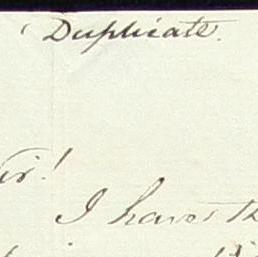 Duplicate.
Sir!
I have th